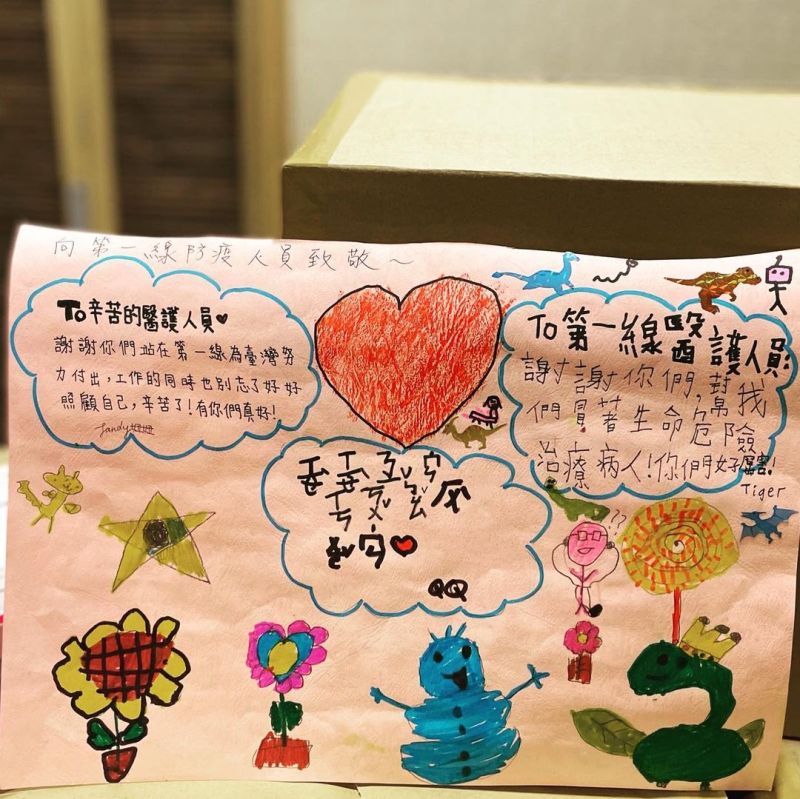 向第一線防疫人員致敬~
To辛苦的醫護人員♥
謝謝你們站在第一線為臺灣努
力付出,工作的同時也別忘了好好
照顧自己,辛苦了!有你們真好!
To第一線醫護人員
謝謝你們,幫我
們冒著生命危險
治療病人!你們好厲害!
Tiger
QQ
??